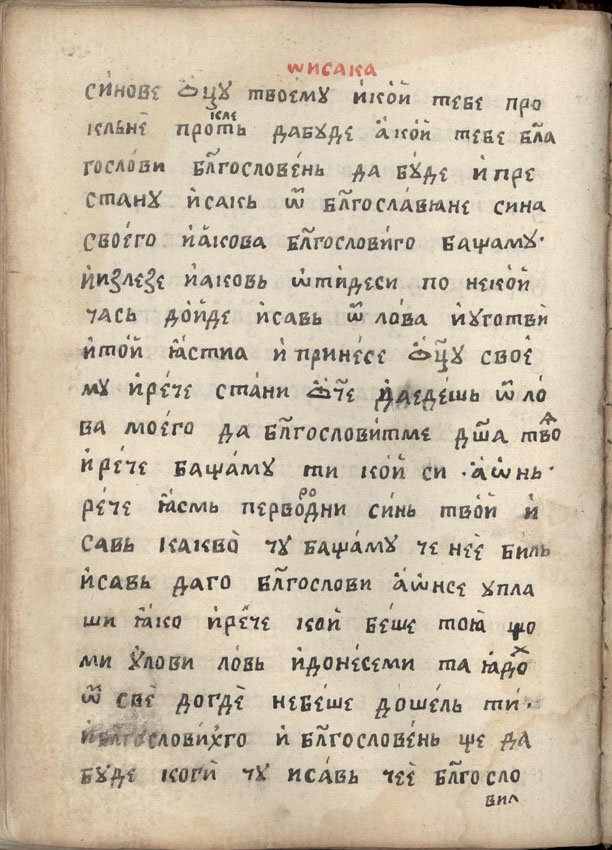 ѡисака
си́нове ѻ҃цу твоему и҆ко́й тебе про
кльнѐ прокле́ть дабуде а҆ ко́й тебе бл҃а
гослови бл҃гослове́нь да бу́де и҆ пре
стану и҆сакь ѿ бл҃гославꙗне сина
свое́го и҆а҆кова бл҃гослови́го баща́му·
и҆изле́зе и҆а́ковь ѡ҆ти́деси по неко́й
часъ до́йде и҆савь ѿ ло́ва и҆уготви
и҆то́й ꙗ҆стиа и҆ принесе ѻ҃цу свое́
му и҆ре́че стани ѻ҃че да едешь ѿ ло
ва моего да бл҃гослови́тме дш҃а твоѧ
и҆ре́че баща́му ти ко́й си · а҆ѡ҆нь·
ре́че ꙗ҆смь перворо́дни синь тво́й и҆
савь какво̀ чу баща́му че неѐ биль
и҆савь даго бл҃гослови а҆ѡ҆нсе упла
ши ꙗ҆ко и҆ре́че ко́й беше тоꙗ що
ми у҆лови ловь и҆донесеми та ꙗ҆до́х
ѿ свѐ догдѐ небе́ше до́шель ти·
и҆бл҃гослови́хго и҆ бл҃гослове́нь ще да
бу́де коги̋ чу иса́вь чеѐ бл҃госло
вил